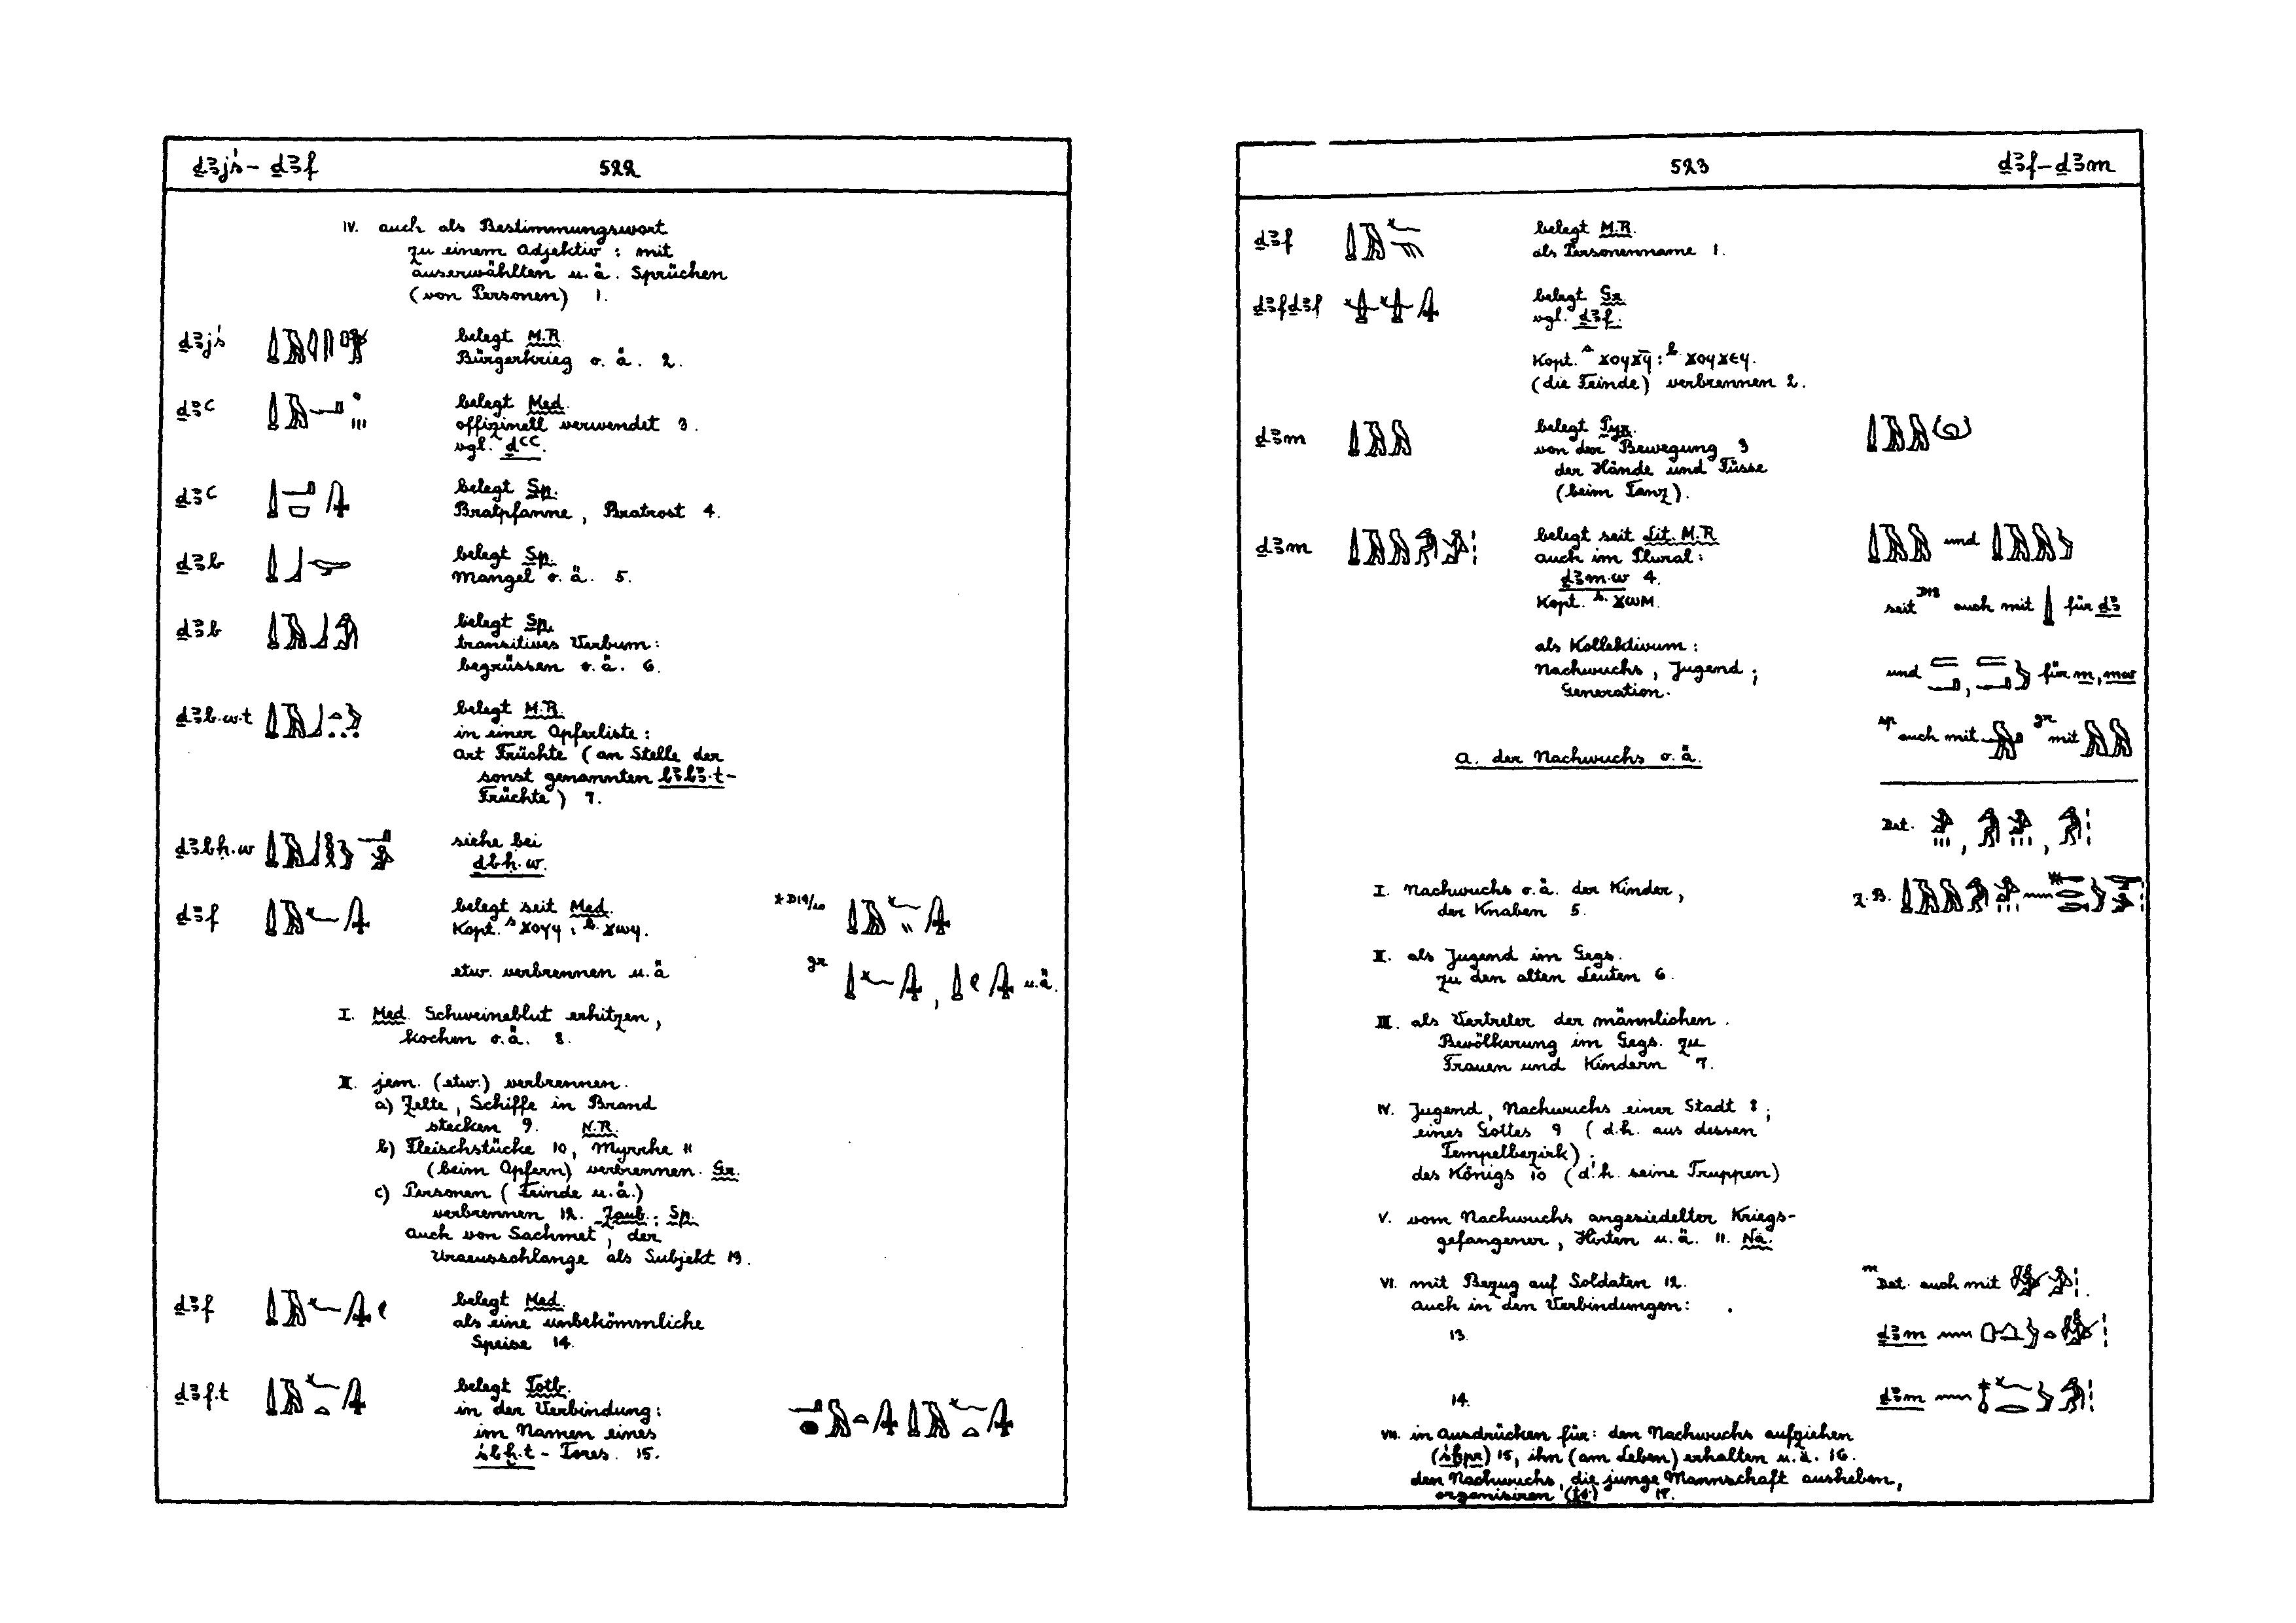 ḏꜣjś – ḏꜣf 522
IV. auch als Bestimmungswort
zu einem Adjektiv : mit
auserwählten u.ä. Sprüchen
(von Personen) 1.
ḏꜣjś belegt M.R.
Bürgerkrieg o. ä. 2.
ḏꜣꜥ belegt Med.
offizinell verwendet 3.
vgl. ḏꜥꜥ.
ḏꜣꜥ belegt Sp.
Bratpfanne, Bratrost 4.
ḏꜣb belegt Sp.
Mangel o. ä. 5.
ḏꜣb belegt Sp.
transitives Verbum:
begrüssen o. ä. 6.
ḏꜣb.w.t belegt M.R.
in einer Opferliste:
Art Früchte (an Stelle der
sonst genannten bꜣbꜣ.t-
Früchte) 7.
ḏꜣbḥ.w siehe bei
dbḥ.w.
ḏꜣf belegt seit Med. *D19/20
Kopt. ˢ ϫⲟⲩϥ : ᵇ ϫⲱϥ.
etw. verbrennen u.ä. gr , u.ä.
I. Med. Schweineblut erhitzen,
kochen o.ä. 8.
II. jem. (etw.) verbrennen.
a) Zelte, Schiffe in Brand
stecken 9. N.R.
b) Fleischstücke 10, Myrrhe 11
(beim Opfern) verbrennen. Gr.
c) Personen (Feinde u.ä.)
verbrennen 12. Zaub.; Sp.
auch von Sachmet, der
Uraeusschlange als Subjekt 13.
ḏꜣf belegt Med.
als eine unbekömmliche
Speise 14.
ḏꜣf.t belegt Totb.
in der Verbindung:
im Namen eines
śbḫ.t – Tores. 15.
523 ḏꜣf – ḏꜣm
ḏꜣf belegt M.R.
als Personenname 1.
ḏꜣfḏꜣf belegt Gr.
vgl. ḏꜣf.
Kopt. ˢ ϫⲟⲩϫϥ̄ : ᵇ ϫⲟⲩϫⲉϥ.
(die Feinde) verbrennen 2.
ḏꜣm belegt Pyr.
von der Bewegung 3
der Hände und Füsse
(beim Tanz).
ḏꜣm belegt seit Lit. M.R. und
auch im Plural:
ḏꜣm.w 4.
Kopt. ᵇ ϫⲱⲙ. seit D18 auch mit für ḏꜣ
als Kollektivum:
Nachwuchs, Jugend; und , für m, mw
Generation.
sp auch mit gr mit
A. der Nachwuchs o.ä.
Det. , ,
I. Nachwuchs o.ä. der Kinder, z. B.
der Knaben 5.
II. als Jugend im Gegs.
zu den alten Leuten 6.
III. als Vertreter der männlichen
Bevölkerung im Gegs. zu
Frauen und Kindern 7.
IV. Jugend, Nachwuchs einer Stadt 8;
eines Gottes 9 (d.h. aus dessen
Tempelbezirk);
des Königs 10 (d.h. seine Truppen)
V. vom Nachwuchs angesiedelter Kriegs-
gefangener, Hirten u.ä. 11. Nä.
VI. mit Bezug auf Soldaten 12. Det. auch mit
auch in den Verbindungen:
13. ḏꜣm
14. ḏꜣm
VII. in Ausdrücken für: den Nachwuchs aufziehen
(śḫpr) 15, ihn (am Leben) erhalten u.ä. 16.
den Nachwuchs, die junge Mannschaft ausheben,
organisiren (ṯś) 17.